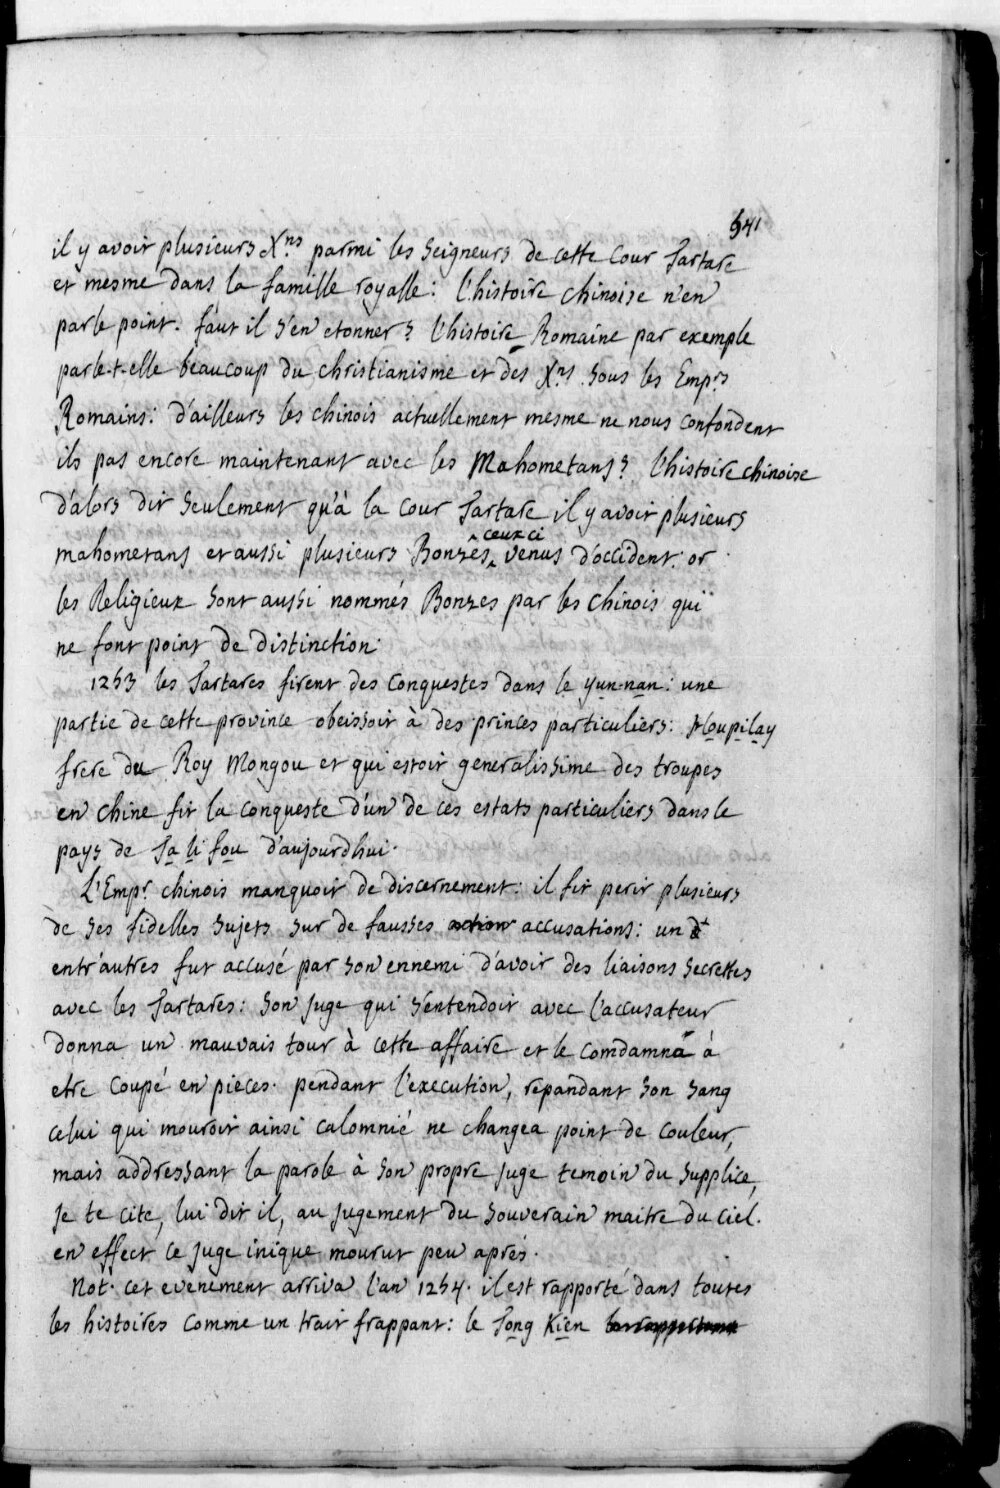 541
il y avoit plusieurs X.ns parmi les seigneurs de cette cour Tartare
et mesme dans la famille royalle: l'histoire chinoise n'en
parle point. faut il s'en etonner? l'histoire Romaine par exemple
parle-t-elle beaucoup du christianisme et des X.ns sous les Emp.rs
Romains: d'ailleurs les chinois actuellement mesme ne nous confondent
ils pas encore maintenant avec les Mahometans? l'histoire chinoise
d'alors dit seulement qu'à la cour Tartare il y avoit plusieurs
mahometans et aussi plusieurs Bonzes ceux ci venus d'occident: or
les Religieux sont aussi nommés Bonzes par les chinois qui
ne font point de distinction.
1253 les Tartares firent des conquestes dans le yun-nan: une
partie de cette province obeissoit à des princes particuliers: Houpilay
frere du Roy Mongou et qui estoit generalissime des troupes
en chine fit la conqueste d'un de ces estats particuliers dans le
pays de Ta li fou d'aujourdhui.
L'Emp.r chinois manquoit de discernement: il fit perir plusieurs
de ses fidelles sujets sur de fausses action accusations: un
entr'autres fut accusé par son ennemi d'avoir des liaisons secrettes
avec les Tartares: son juge qui s'entendoit avec l'accusateur
donna un mauvais tour à cette affaire et le comdamna à
etre coupé en pieces. pendant l'execution, repandant son sang
celui qui mouroit ainsi calomnié ne changea point de couleur,
mais addressant la parole à son propre juge temoin du supplice,
je te cite, lui dit il, au jugement du souverain maitre du ciel.
en effect ce juge inique mourut peu aprés.
Not. cet evenement arriva l'an 1254. il est rapporté dans toutes
les histoires comme un trait frappant: le Tong Kien